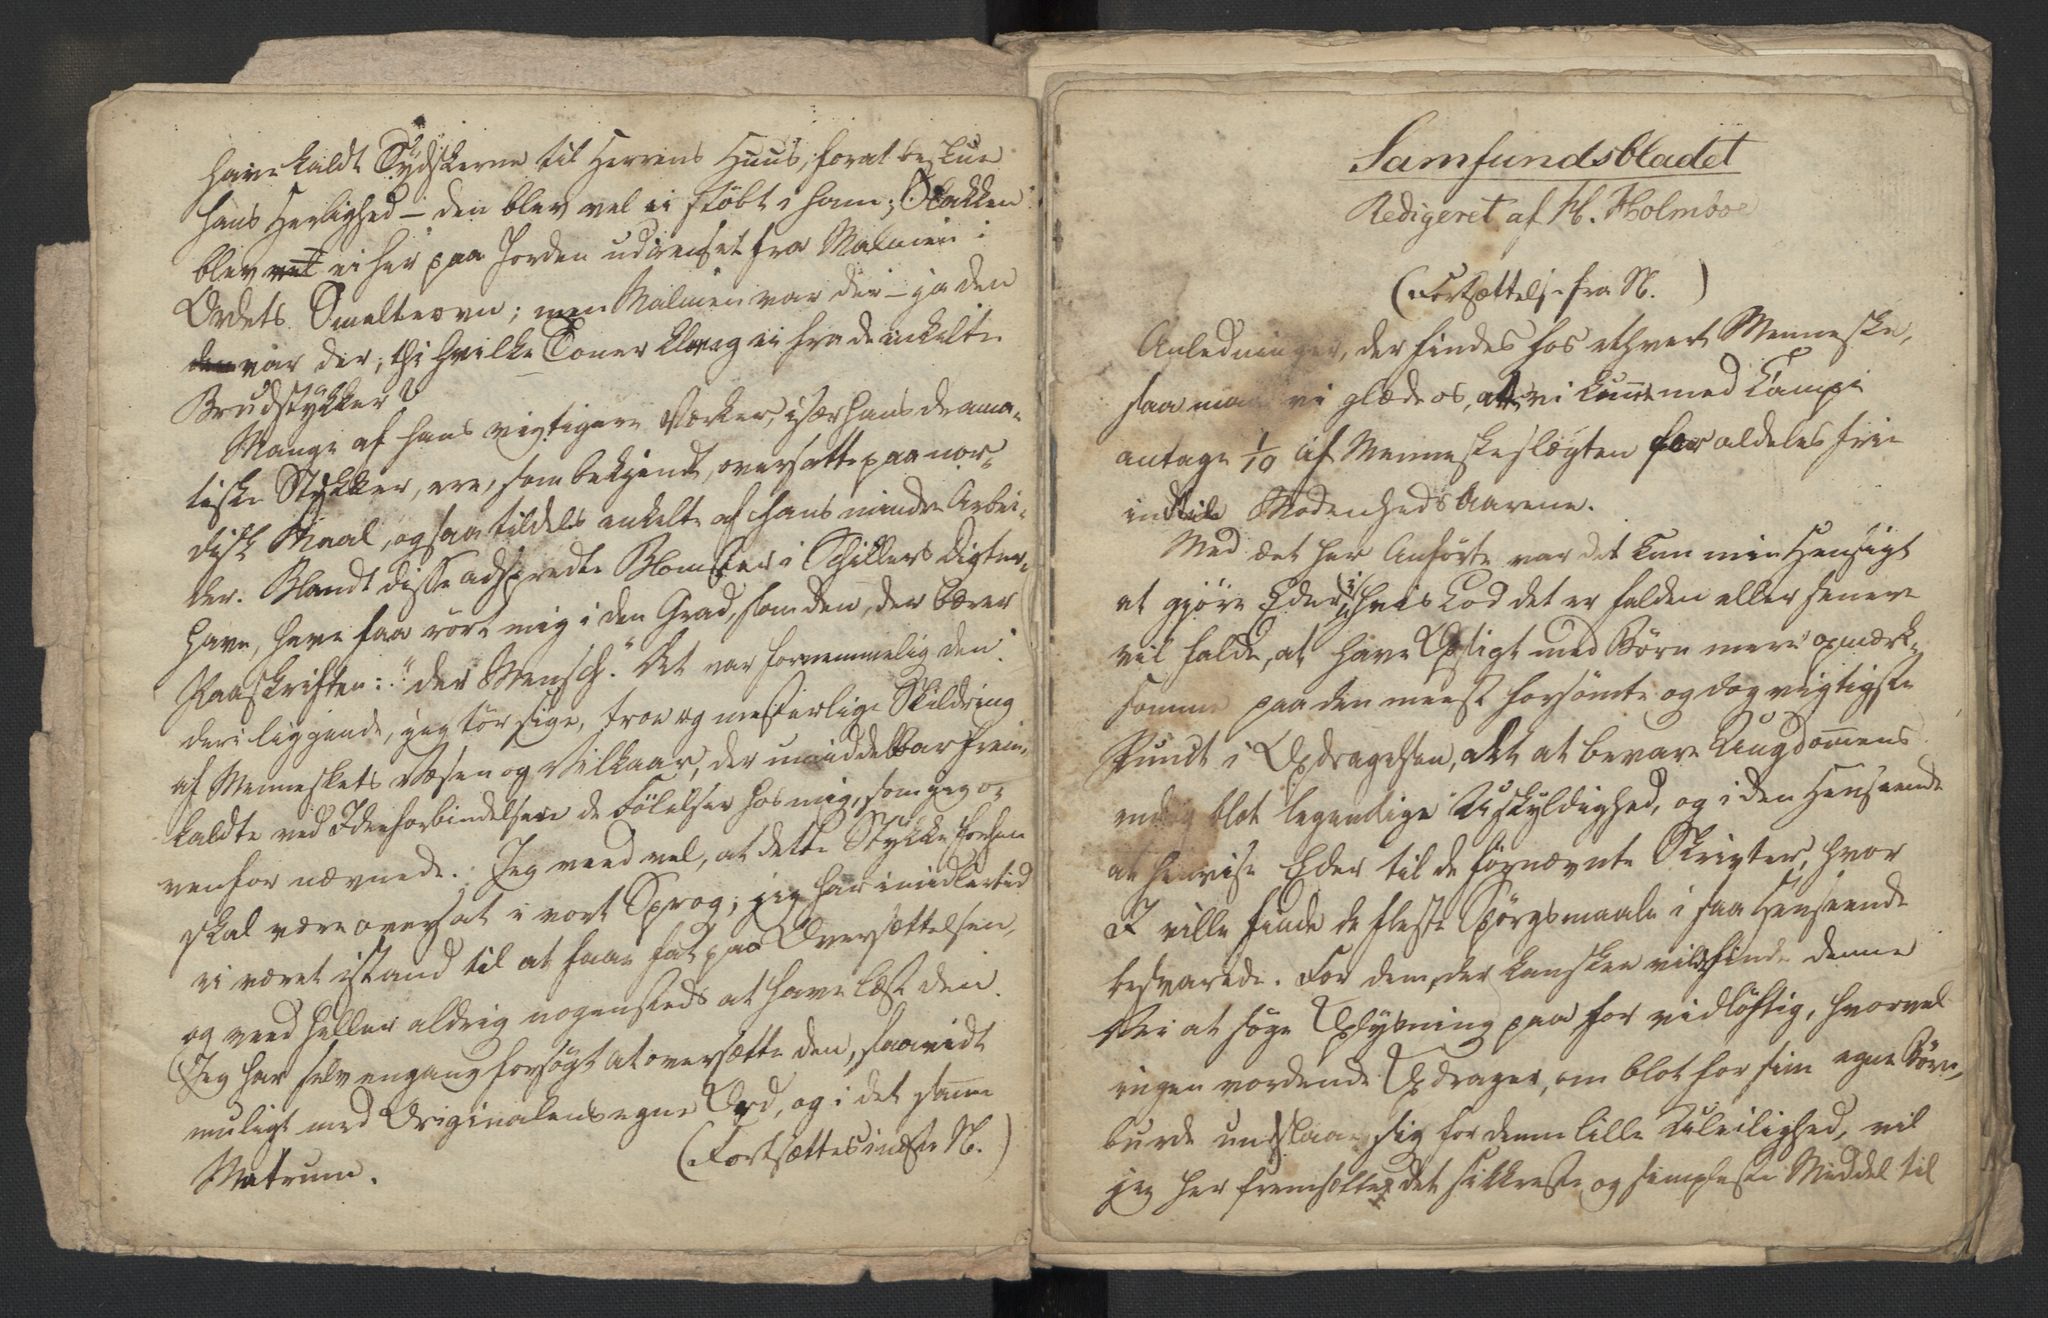 have kaldt Tydskerne til Herrens Huus, forat beskue
hans Herlighed – den blev vel ei støbt i ham; Slakken
blev vel ei her paa Jorden udrenset fra Malmen i
Ordets Smelteovn; men Malmen var der – ja den
den var der; thi hvilke Toner klang ei fra de enkelte
Brudstykker?
Mange af hans vigtigere Værker, især hans drama-
tiske Stykker, ere, som bekjendt, oversatte paa nor-
disk Maal, ogsaa tildels enkelte af hans mindre Arbei-
der. Blandt disse adspredte Blomster i Schillers Digter-
have, have faa rørt mig i den Grad, som den, der bærer
Paaskriften: "der Mensch." Det var fornemmelig den
deri liggende, jeg tør sige, troe og mesterlige Skildring
af Menneskets Væsen og Vilkaar, der umiddelbar frem-
kaldte ved Ideeforbindelsen de Følelser hos mig, som jeg o-
venfor nævnede. Jeg veed vel, at dette Stykke forhen
skal være oversat i vort Sprog; jeg har imidlertid
ei været istand til at faae fat paa Oversættelsen,
og veed heller aldrig nogensteds at have læst den.
Jeg har selv engang forsøgt at oversætte den, saavidt
muligt med Originalens egne Ord, og i det samme
Metrum.
(Fortsættes i næste N.)
Samfundsbladet
Redigeret af H. Holmboe
(Fortsættelse fra N. )
Anledninger, der findes hos ethvert Menneske,
saa maae vi glæde os, at vi kunne med Campe
antage 1/10 af Menneskeslægten for aldeles frie
indtil Modenheds Aarene.
Med det her Anførte var det kun min Hensigt
at gjøre Eder, i hvis Lod det er falden eller senere
vil falde, at have Opsigt med Børn mere opmærk-
somme paa den meest forsømte og dog vigtigste
Punct i Opdragelsen, det at bevare Ungdommens
blot legemlige Uskyldighed, og i den Henseende
at henvise Eder til de førnævnte Skrivter, hvor
I ville finde de fleste Spørgsmaale i saa Henseende
besvarede. For dem, der kanskee vilde finde denne
Vei at søge Oplysning paa for vidløftig, hvorvel
ingen vordende Opdrager, om blot for sine egne Børn,
burde undslaae sig for denne lille Uleilighed, vil
jeg her fremsætte det sikkreste og simpleste Middel til